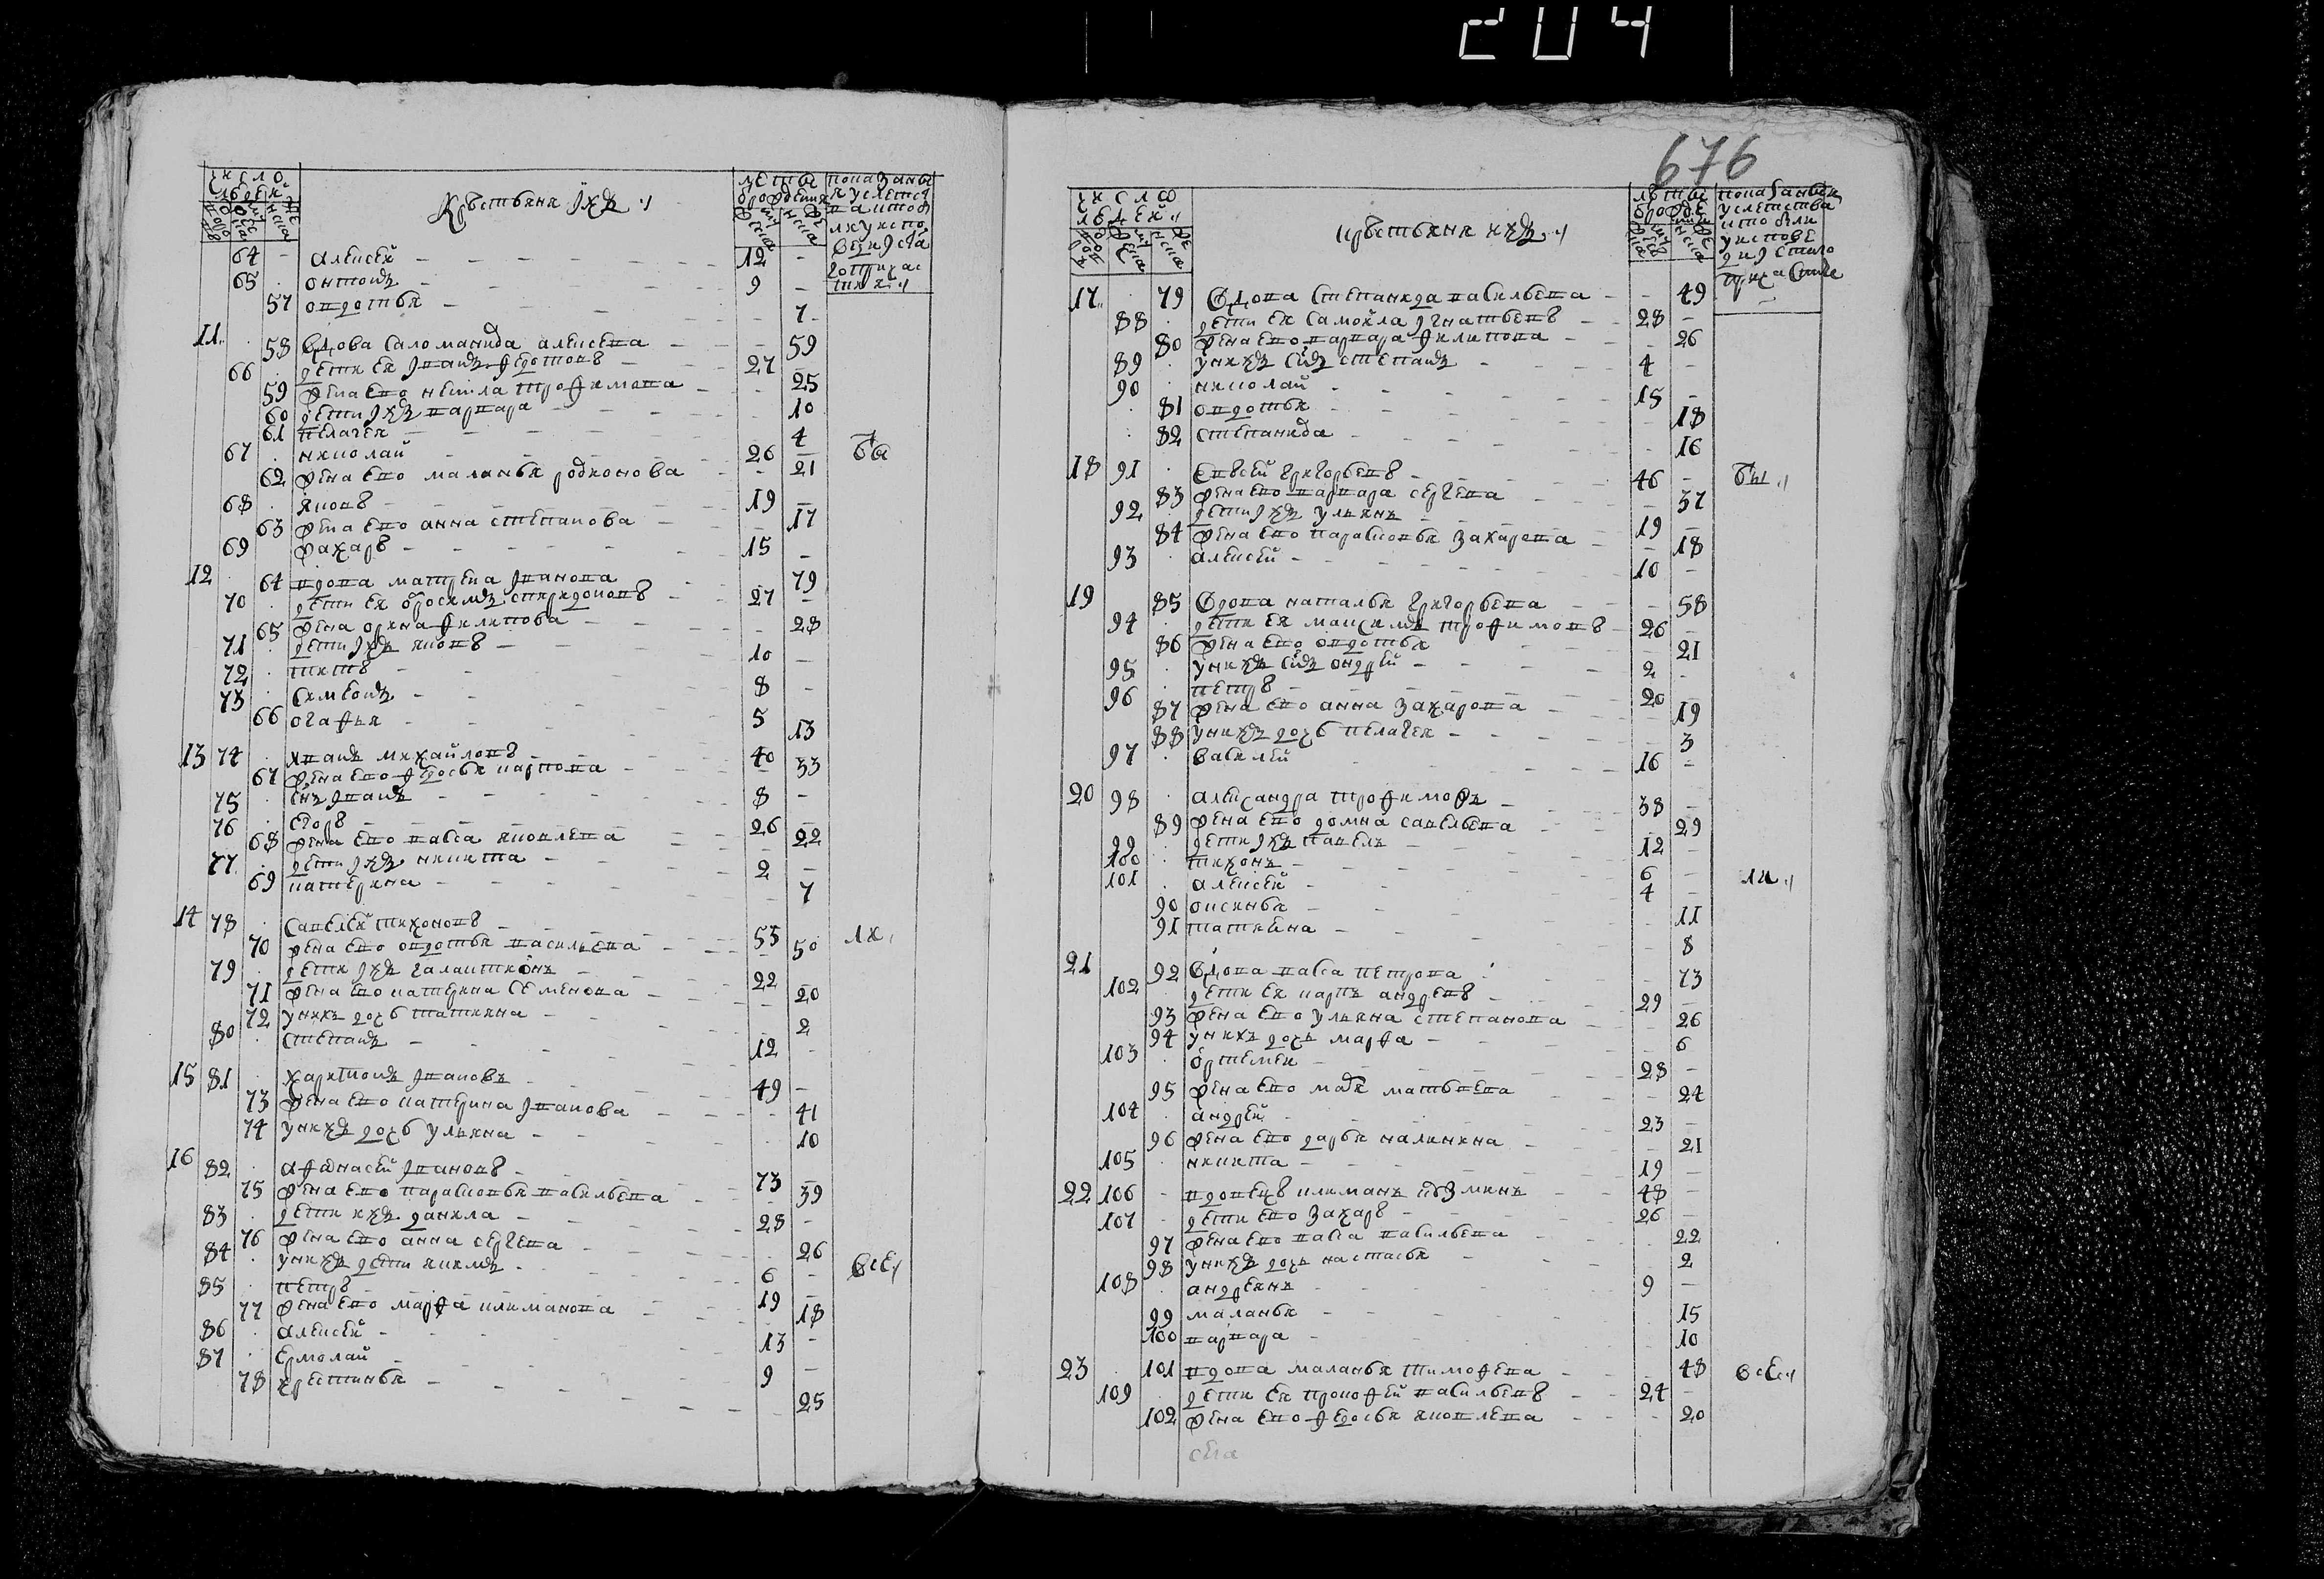 204
676
число
людей
дворо
муже
ска
женска
Крестьяне ихъ
лета
от рождения
муже
ска
женска
показаны
64 - алексей - 12 -
65 онтонъ - 9 -
57 овдотья - 7
11 58 вдова саломанида алексева - 59
66 дети ея иванъ федотовъ - 27 -
59 жена ево некила трофимова - 25
60 дети ихъ варвара - 10
61 пелагея - 4
67 николай - 26 - бы
62 жена ево маланья родионова - 21
68 яковъ - 19 -
63 жена ево анна степанова - 17
69 захаръ - 15 -
12 64 вдова матрена иванова - 79
70 дети ея ѳросимъ спиридоновъ - 27 -
65 жена орина филипова - 28
71 дети ихъ яковъ - 10 -
72 титъ - 8 -
73 симеонъ - 5
66 огафья - 13
13 74 иванъ михайловъ - 40
67 жена ево федосья карпова - 33
75 снъ иванъ - 8 -
76 егоръ - 26 -
68 жена ево васа яковлева - 22
77 дети ихъ никита - 2 -
69 катерина - 7
14 78 савелей тихоновъ - 55 ли
70 жена ево овдотья васильева - 50
79 дети ихъ галактионъ - 22
71 жена ево катерина семенова - 20
72 у нихъ дочь татияна - 2
80 степанъ - 12 -
15 81 харитонъ ивановъ - 49 -
73 жена ево катерина иванова - 41
74 у нихъ дочь ульяна - 10
16 82 афонасей ивановъ - 73
75 жена ево парасковья васильева - 39
83 дети ихъ данила - 28 -
76 жена ево анна сергева - 26
84 у нихъ дети якимъ - 6 - все
85 петръ - 19 -
77 жена ево марфа климанова - 18
86 алексей - 13 -
87 ермолай - 9 -
78 хрестинья - 25
число
людей
крестьяне ихъ
лета
17 79 вдова степанида васильева - 49
88 дети ея самойла игнатьевъ - 28 -
80 жена ево варвара филипова - 26
89 у нихъ снъ степанъ - 4 -
90 николай - 15 -
81 овдотья - 18
82 степанида - 16
18 91 евсей григорьевъ - 46 - бы
83 жена ево варвара сергева - 37
92 дети ихъ ульянъ - 19 -
84 жена ево парасковья захарова - 18
93 алексей - 10 -
19 85 вдова наталья григорьева - 58
94 дети ея максимъ трофимовъ - 26 -
86 жена ево овдотья - 21
95 у нихъ снъ ондрей - 2 -
96 петръ - 20 -
87 жена ево анна захарова - 19
88 у нихъ дочь пелагея - 3
97 василей - 16 -
20 98 александра трофимовъ - 38 -
89 жена ево домна савельева - 29
99 дети ихъ павелъ - 12 -
100 тихонъ - 6 -
101 алексей - 4 ли
90 оксинья - 11
91 татияна - 8
21 92 вдова васа петрова - 73
102 дети ея карпъ андревъ - 29 -
93 жена ево ульяна степанова - 26
94 у нихъ дочь марфа - 6
103 ортемей - 28 -
95 жена ево мавра матвеева - 24
104 андрей - 23 -
96 жена ево дарья калинина - 21
105 никита - 19 -
22 106 - вдовецъ климанъ козминъ - 48 -
107 дети ево захаръ - 26 -
97 жена ево васа васильева - 22
98 у нихъ дочь настасья - 2
108 андреянъ - 9 -
99 маланья - 15
100 варвара - 10
23 101 вдова маланья тимофева - 48 все
109 дети ея прокофей васильевъ - 24 -
102 жена ево федосья яковлева - 20